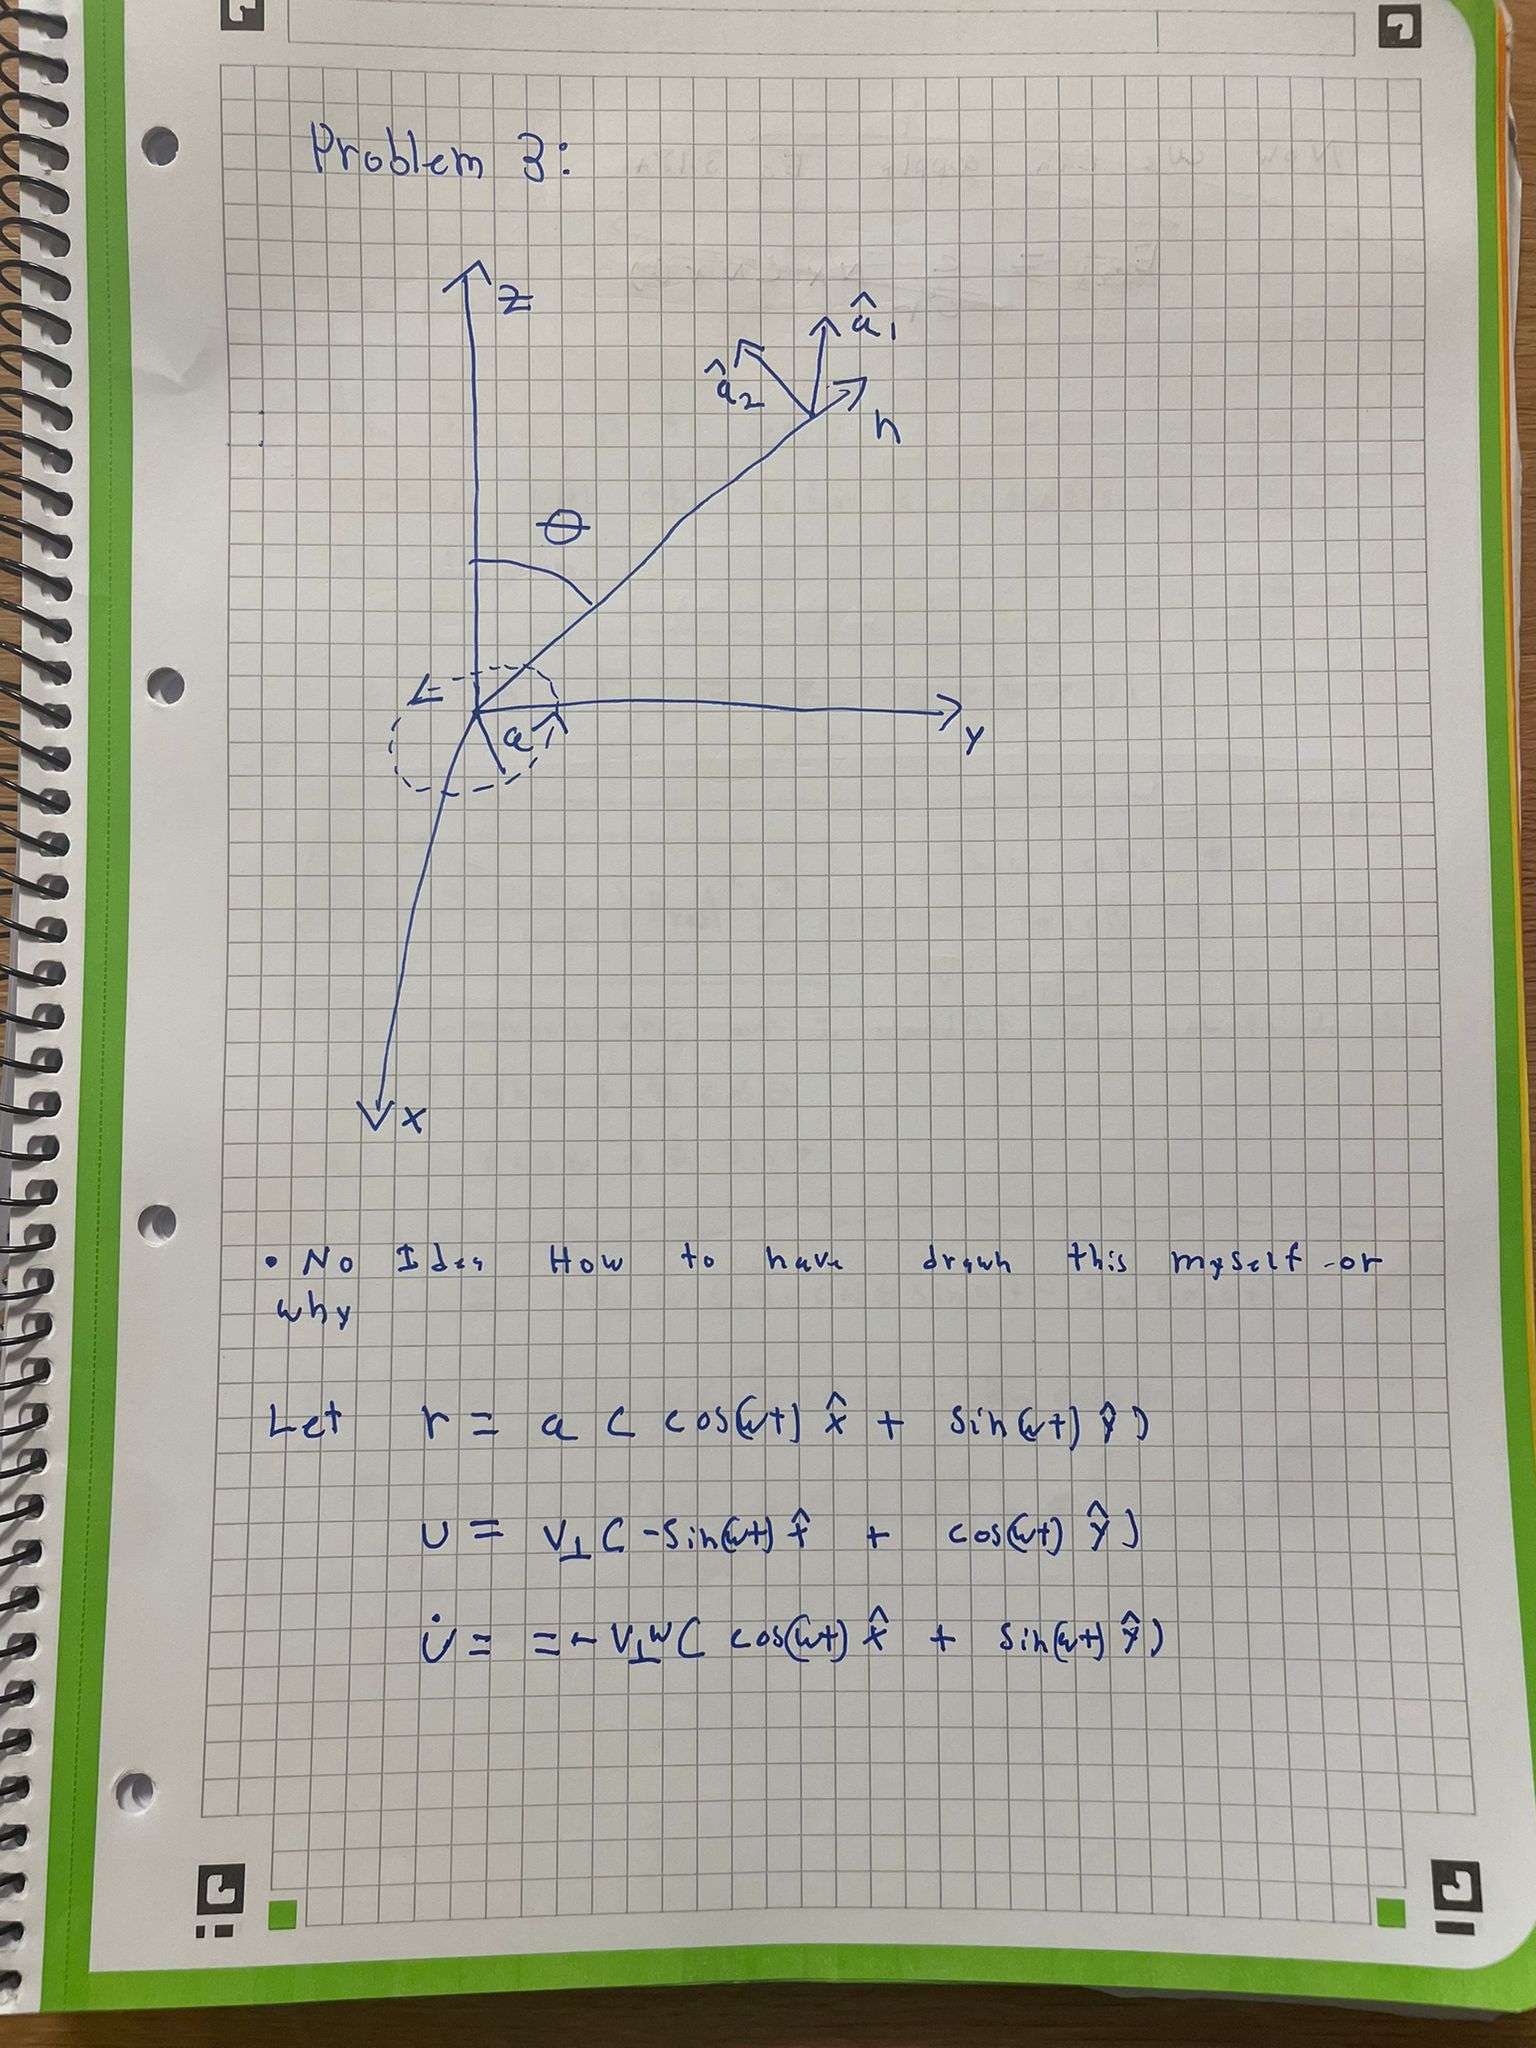 Problem 3:
z
â₁
â₂
n
θ
a
y
x
• No Idea How to have drawn this myself or
why
Let r = a ( cos(ωt) x̂ + sin(ωt) ŷ )
u = v⊥ ( -sin(ωt) x̂ + cos(ωt) ŷ )
u̇ = = - v⊥ω ( cos(ωt) x̂ + sin(ωt) ŷ )